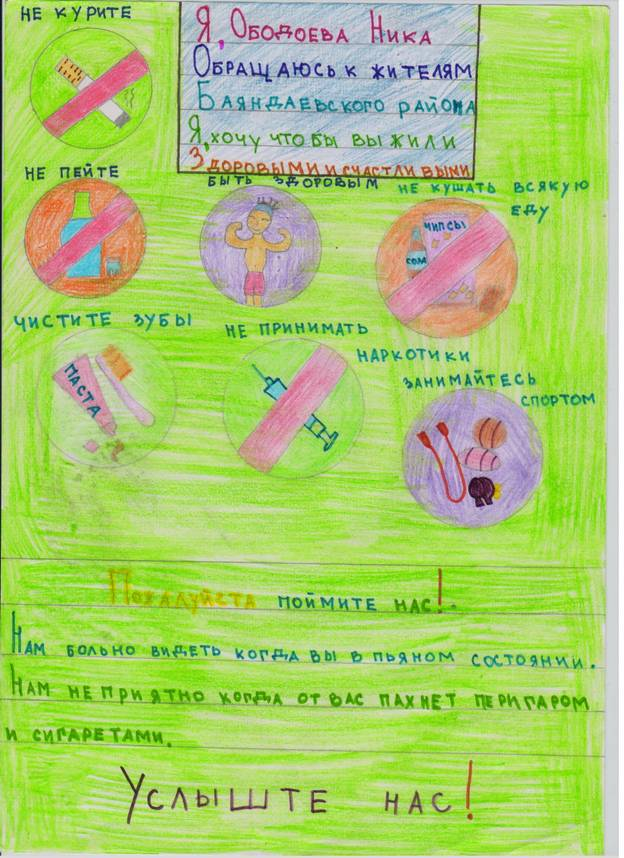 НЕ КУРИТЕ
Я, ОБОДОЕВА НИКА
ОБРАЩАЮСЬ К ЖИТЕЛЯМ
БАЯНДАЕВСКОГО РАЙОНА
Я, ХОЧУ ЧТО БЫ ВЫ ЖИЛИ
ЗДОРОВЫМИ И СЧАСТЛИВЫМИ
НЕ ПЕЙТЕ
БЫТЬ ЗДОРОВЫМ
НЕ КУШАТЬ ВСЯКУЮ
ЕДУ
ЧИПСЫ
СОДА
ЧИСТИТЕ ЗУБЫ
ПАСТА
НЕ ПРИНИМАТЬ
НАРКОТИКИ
ЗАНИМАЙТЕСЬ
СПОРТОМ
ПОЖАЛУЙСТА ПОЙМИТЕ НАС!.
НАМ БОЛЬНО ВИДЕТЬ КОГДА ВЫ В ПЬЯНОМ СОСТОЯНИИ.
НАМ НЕ ПРИЯТНО КОГДА ОТ ВАС ПАХНЕТ ПЕРИГАРОМ
И СИГАРЕТАМИ.
УСЛЫШТЕ НАС!